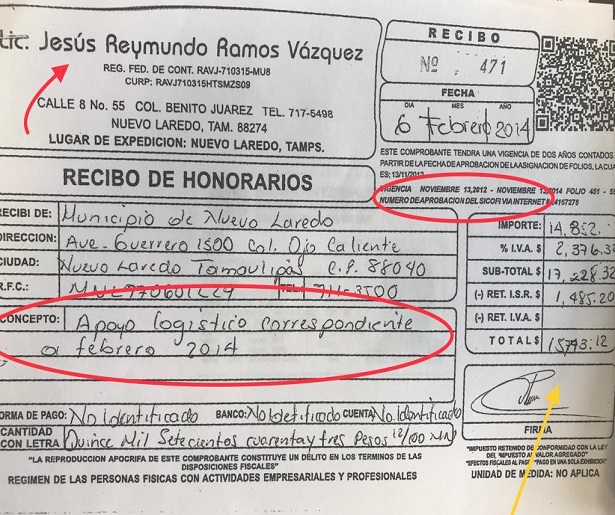 Lic. Jesús Reymundo Ramos Vázquez
REG. FED. DE CONT. RAVJ-710315-MU8
CURP: RAVJ710315HTSMZS09
CALLE 8 No. 55 COL. BENITO JUAREZ TEL. 717-5498
NUEVO LAREDO, TAM. 88274
LUGAR DE EXPEDICION: NUEVO LAREDO, TAMPS.
RECIBO
Nº 471
FECHA
DIA MES AÑO
6 Febrero 2014
ESTE COMPROBANTE TENDRA UNA VIGENCIA DE DOS AÑOS CONTADOS
PARTIR DE LA FECHA DE APROBACION DE LA ASIGNACION DE FOLIOS, LA CUA
ES; 13/11/2012
VIGENCIA NOVIEMBRE 13,2012 - NOVIEMBRE 13,2014 FOLIO 451 - 55
NUMERO DE APROBACION DEL SICOFI VIA INTERNET #
RECIBO DE HONORARIOS
RECIBI DE: Municipio de Nuevo Laredo
DIRECCION: Ave. Guerrero 1500 Col. Ojo Caliente
CIUDAD: Nuevo Laredo Tamaulipas C.P. 88040
R.F.C.: TEL 711-3500
CONCEPTO: Apoyo logistico correspondiente
a febrero 2014
IMPORTE: 14,852.
% I.V.A. $ 2,376.32
SUB-TOTAL $ 17,228.32
(-) RET. I.S.R. $ 1,485.20
(-) RET. I.V.A. $
TOTAL $ 15743.12
FORMA DE PAGO: No Identificado BANCO: No Identificado CUENTA No. Identificado
CANTIDAD CON LETRA Quince Mil Setecientos cuarenta y tres Pesos 12/100 MN
FIRMA
"LA REPRODUCCION APOCRIFA DE ESTE COMPROBANTE CONSTITUYE UN DELITO EN LOS TERMINOS DE LAS
DISPOSICIONES FISCALES"
REGIMEN DE LAS PERSONAS FISICAS CON ACTIVIDADES EMPRESARIALES Y PROFESIONALES
"IMPUESTO RETENIDO DE CONFORMIDAD CON LA LEY
DEL IMPUESTO AL VALOR AGREGADO"
"EFECTOS FISCALES AL PAGO" "PAGO EN UNA SOLA EXHIBICION"
UNIDAD DE MEDIDA: NO APLICA